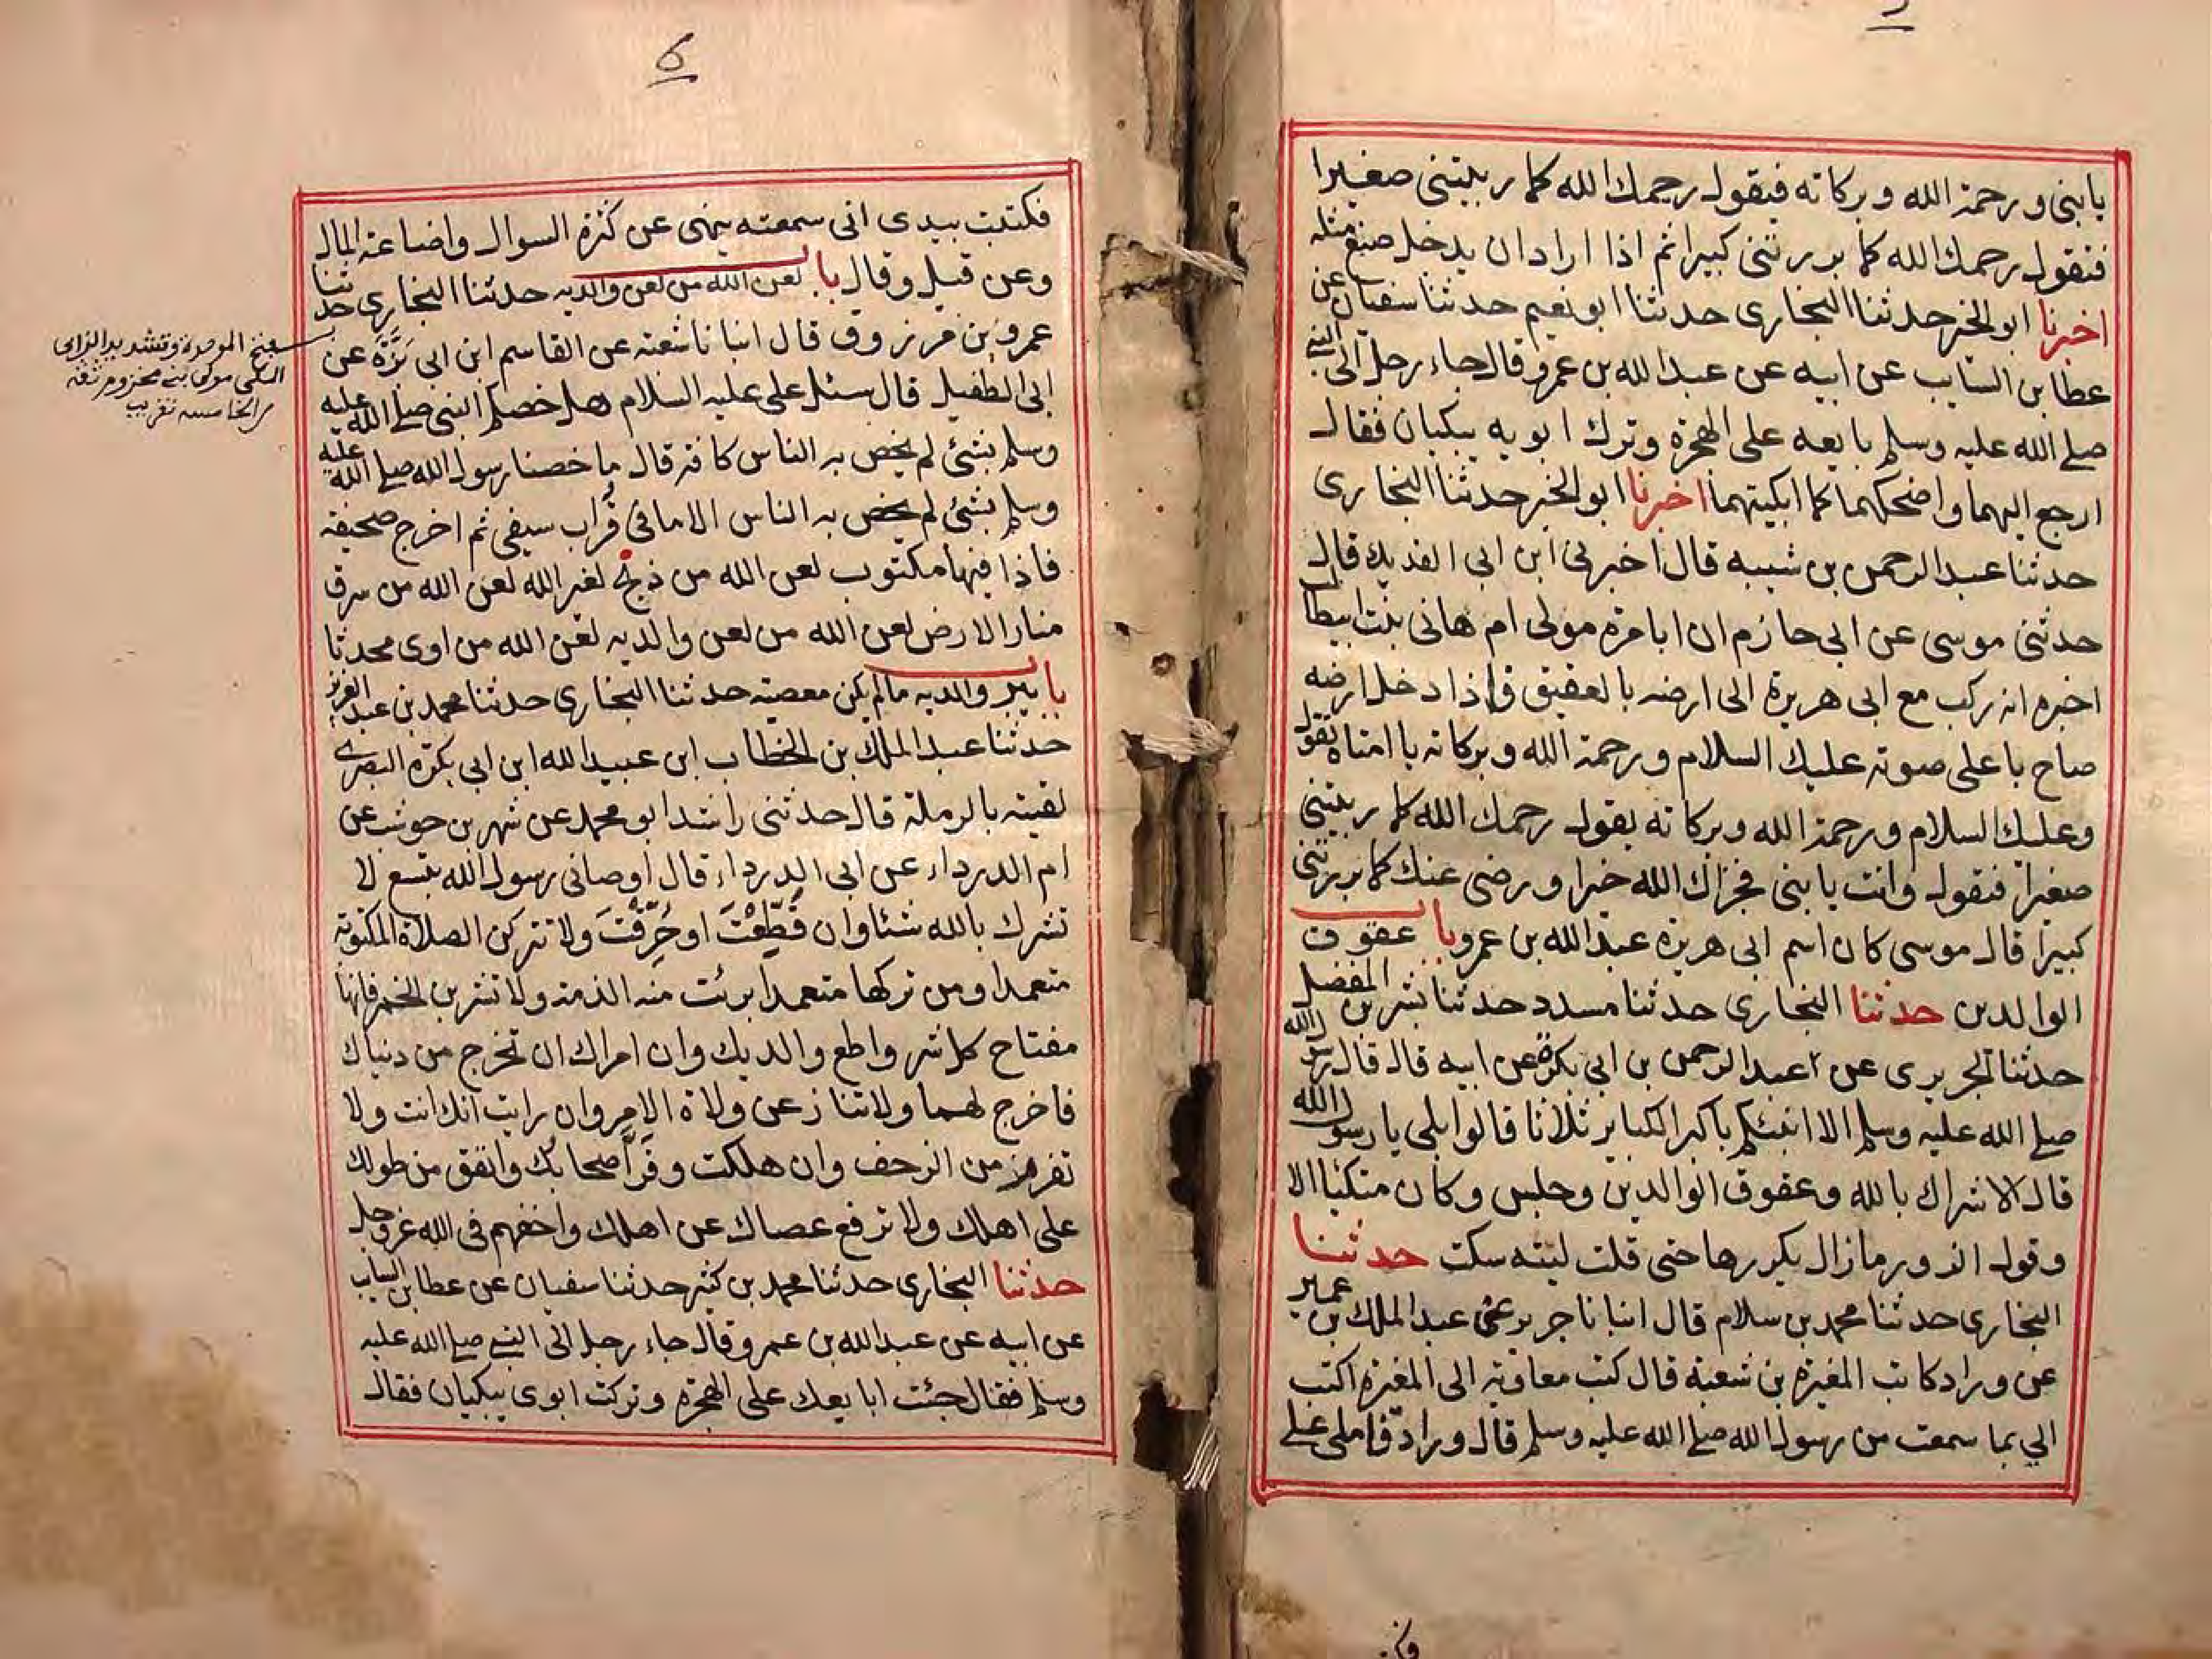 يا بنى ورحمة الله وبركاته فيقول رحمك الله كما ربيتنى صغيرا
فتقول رحمك الله كما بررتنى كبيرا ثم اذا اراد ان يدخل صنع مثله
اخبرنا ابو الخير حدثنا البخارى حدثنا ابو نعيم حدثنا سفيان عن
عطا بن السايب عن ابيه عن عبد الله بن عمرو قال جاء رجل الى النبى
صلى الله عليه وسلم بايعه على الهجرة وترك ابويه يبكيان فقال
ارجع اليهما واضحكهما كما ابكيتهما اخبرنا ابو الخير حدثنا البخارى
حدثنا عبد الرحمن بن شيبه قال اخبرنى ابن ابى الفديك قال
حدثنى موسى عن ابى حازم ان ابا مرة مولى ام هانى بنت ابيطالب
اخبره انه ركب مع ابى هريرة الى ارضه بالعقيق فاذا دخل ارضه
صاح باعلى صوته عليك السلام ورحمة الله وبركاته يا امتاه تقول
وعليك السلام ورحمة الله وبركاته يقول رحمك الله كما ربيتنى
صغيرا فتقول وانت يا بنى فجزاك الله خيرا ورضى عنك كما بررتنى
كبيرا قال موسى كان اسم ابى هريرة عبد الله بن عمرو باب عقوق
الوالدين حدثنا البخارى حدثنا مسدد حدثنا بشر بن المفضل
حدثنا الجريرى عن عبد الرحمن بن ابى بكرة عن ابيه قال قال رسول الله
صلى الله عليه وسلم الا انبئكم باكبر الكباير ثلاثا قالوا بلى يا رسول الله
قال الاشراك بالله وعقوق الوالدين وجلس وكان متكئا الا
وقول الزور ما زال يكررها حتى قلت ليته سكت حدثنا
البخارى حدثنا محمد بن سلام قال انبانا جرير عن عبد الملك بن عمير
عن وراد كاتب المغيرة بن شعبة قال كتب معاوية الى المغيرة اكتب
الي بما سمعت من رسول الله صلى الله عليه وسلم قال وراد فاملى على
6
فكتبت بيدى انى سمعته ينهى عن كثرة السوال واضاعة المال
وعن قيل وقال باب لعن الله من لعن والديه حدثنا البخارى حدثنا
عمرو بن مرزوق قال انبانا شعبة عن القاسم ابن ابى بَزَّةَ عن
ابى الطفيل قال سئل على عليه السلام هل خصكم النبى صلى الله عليه
وسلم بشئ لم يخص به الناس كافة قال ما خصنا رسول الله صلى الله عليه
وسلم بشئ لم يخص به الناس الا ما فى قُراب سيفى ثم اخرج صحيفة
فاذا فيها مكتوب لعن الله من ذبح لغير الله لعن الله من سرق
منار الارض لعن الله من لعن والديه لعن الله من اوى محدثا
باب يبر والديه ما لم يكن معصية حدثنا البخارى حدثنا محمد بن عبد العزيز
حدثنا عبد الملك بن الخطاب ابن عبيد الله ابن ابى بكرة البصرى
لقيته بالرملة قال حدثنى راشد ابو محمد عن شهر بن حوشب عن
ام الدرداء عن ابى الدرداء قال اوصانى رسول الله بتسع لا
تشرك بالله شئا وان قُطِّعْتَ او حُرِّقْتَ ولا تتركن الصلاة المكتوبة
متعمدا ومن تركها متعمدا برئت منه الذمة ولا تشربن الخمر فانها
مفتاح كل شر واطع والديك وان امراك ان تخرج من دنياك
فاخرج لهما ولا تنازعن ولاة الامر وان رايت انك انت ولا
تفرر من الزحف وان هلكت وفَرَّ اصحابُك وانفق من طولك
على اهلك ولا ترفع عصاك عن اهلك واخفهم فى الله عز وجل
حدثنا البخارى حدثنا محمد بن كثير حدثنا سفيان عن عطا بن السايب
عن ابيه عن عبد الله بن عمرو قال جاء رجل الى النبى صلى الله عليه
وسلم فقال جئت ابايعك على الهجرة وتركت ابوى يبكيان فقال
بفتح الموحدة وتشديد الزاى
المكى مولى بنى مخزوم ثقة
من الخامسة تقريب